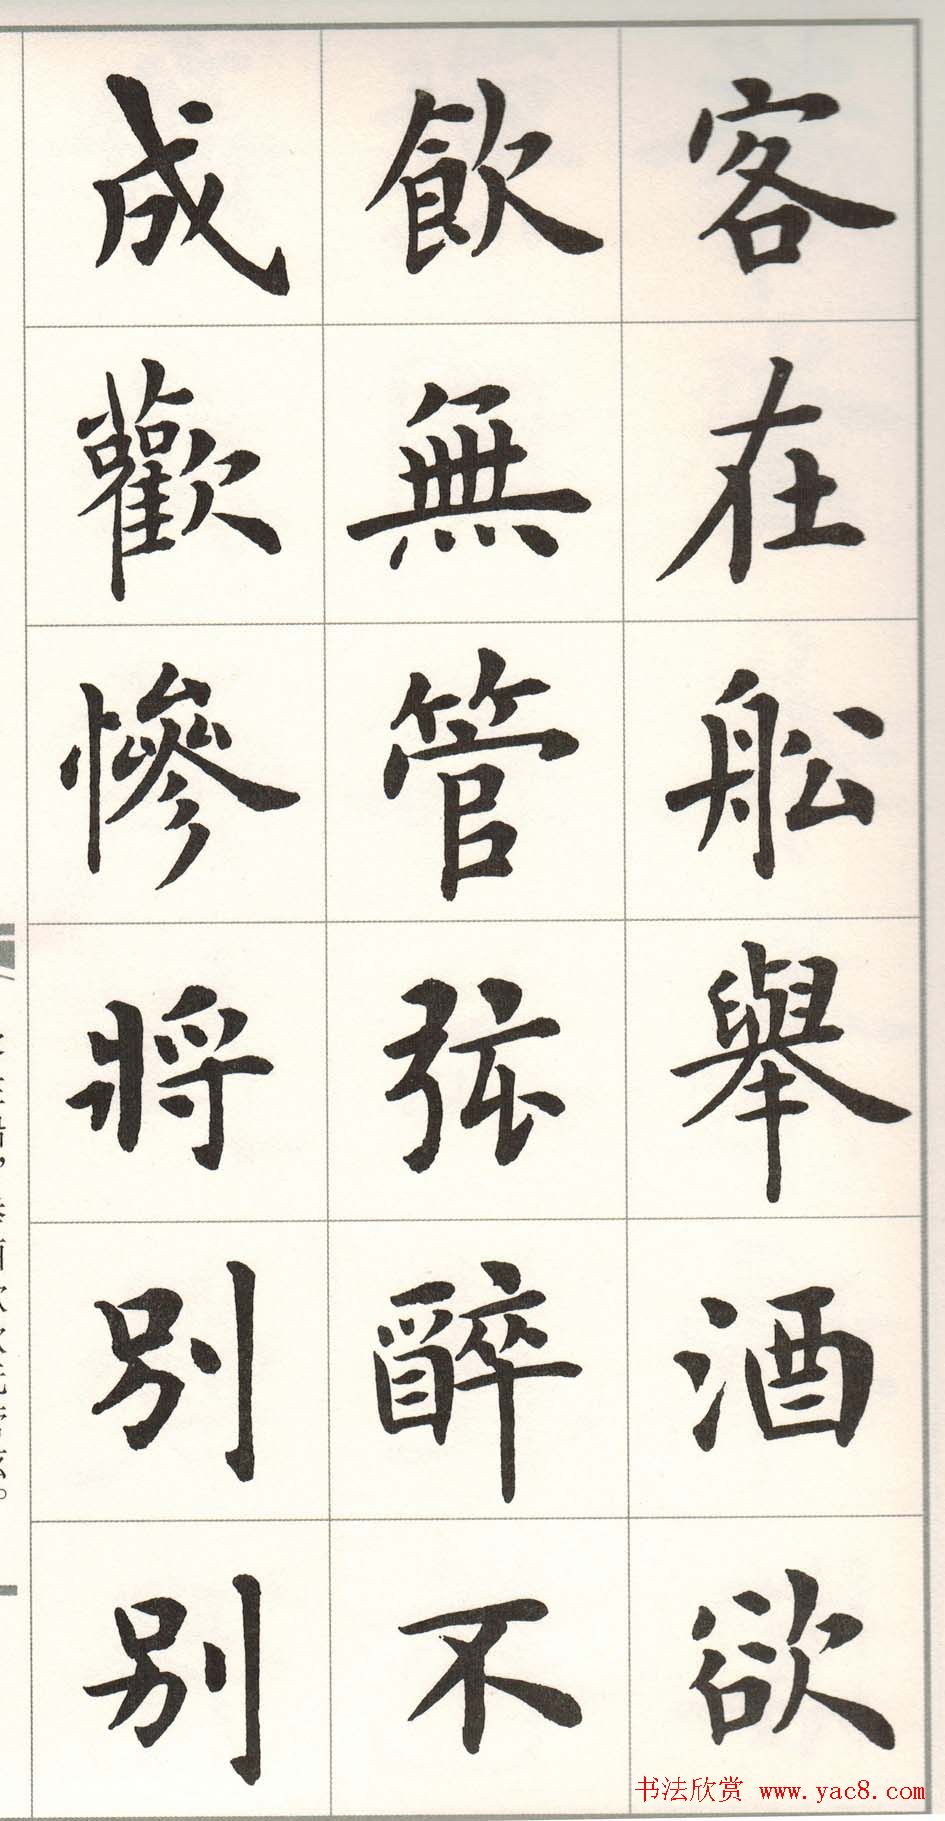 客在舩舉酒欲
飲無管弦醉不
成歡慘將別別
书法欣赏 www.yac8.com